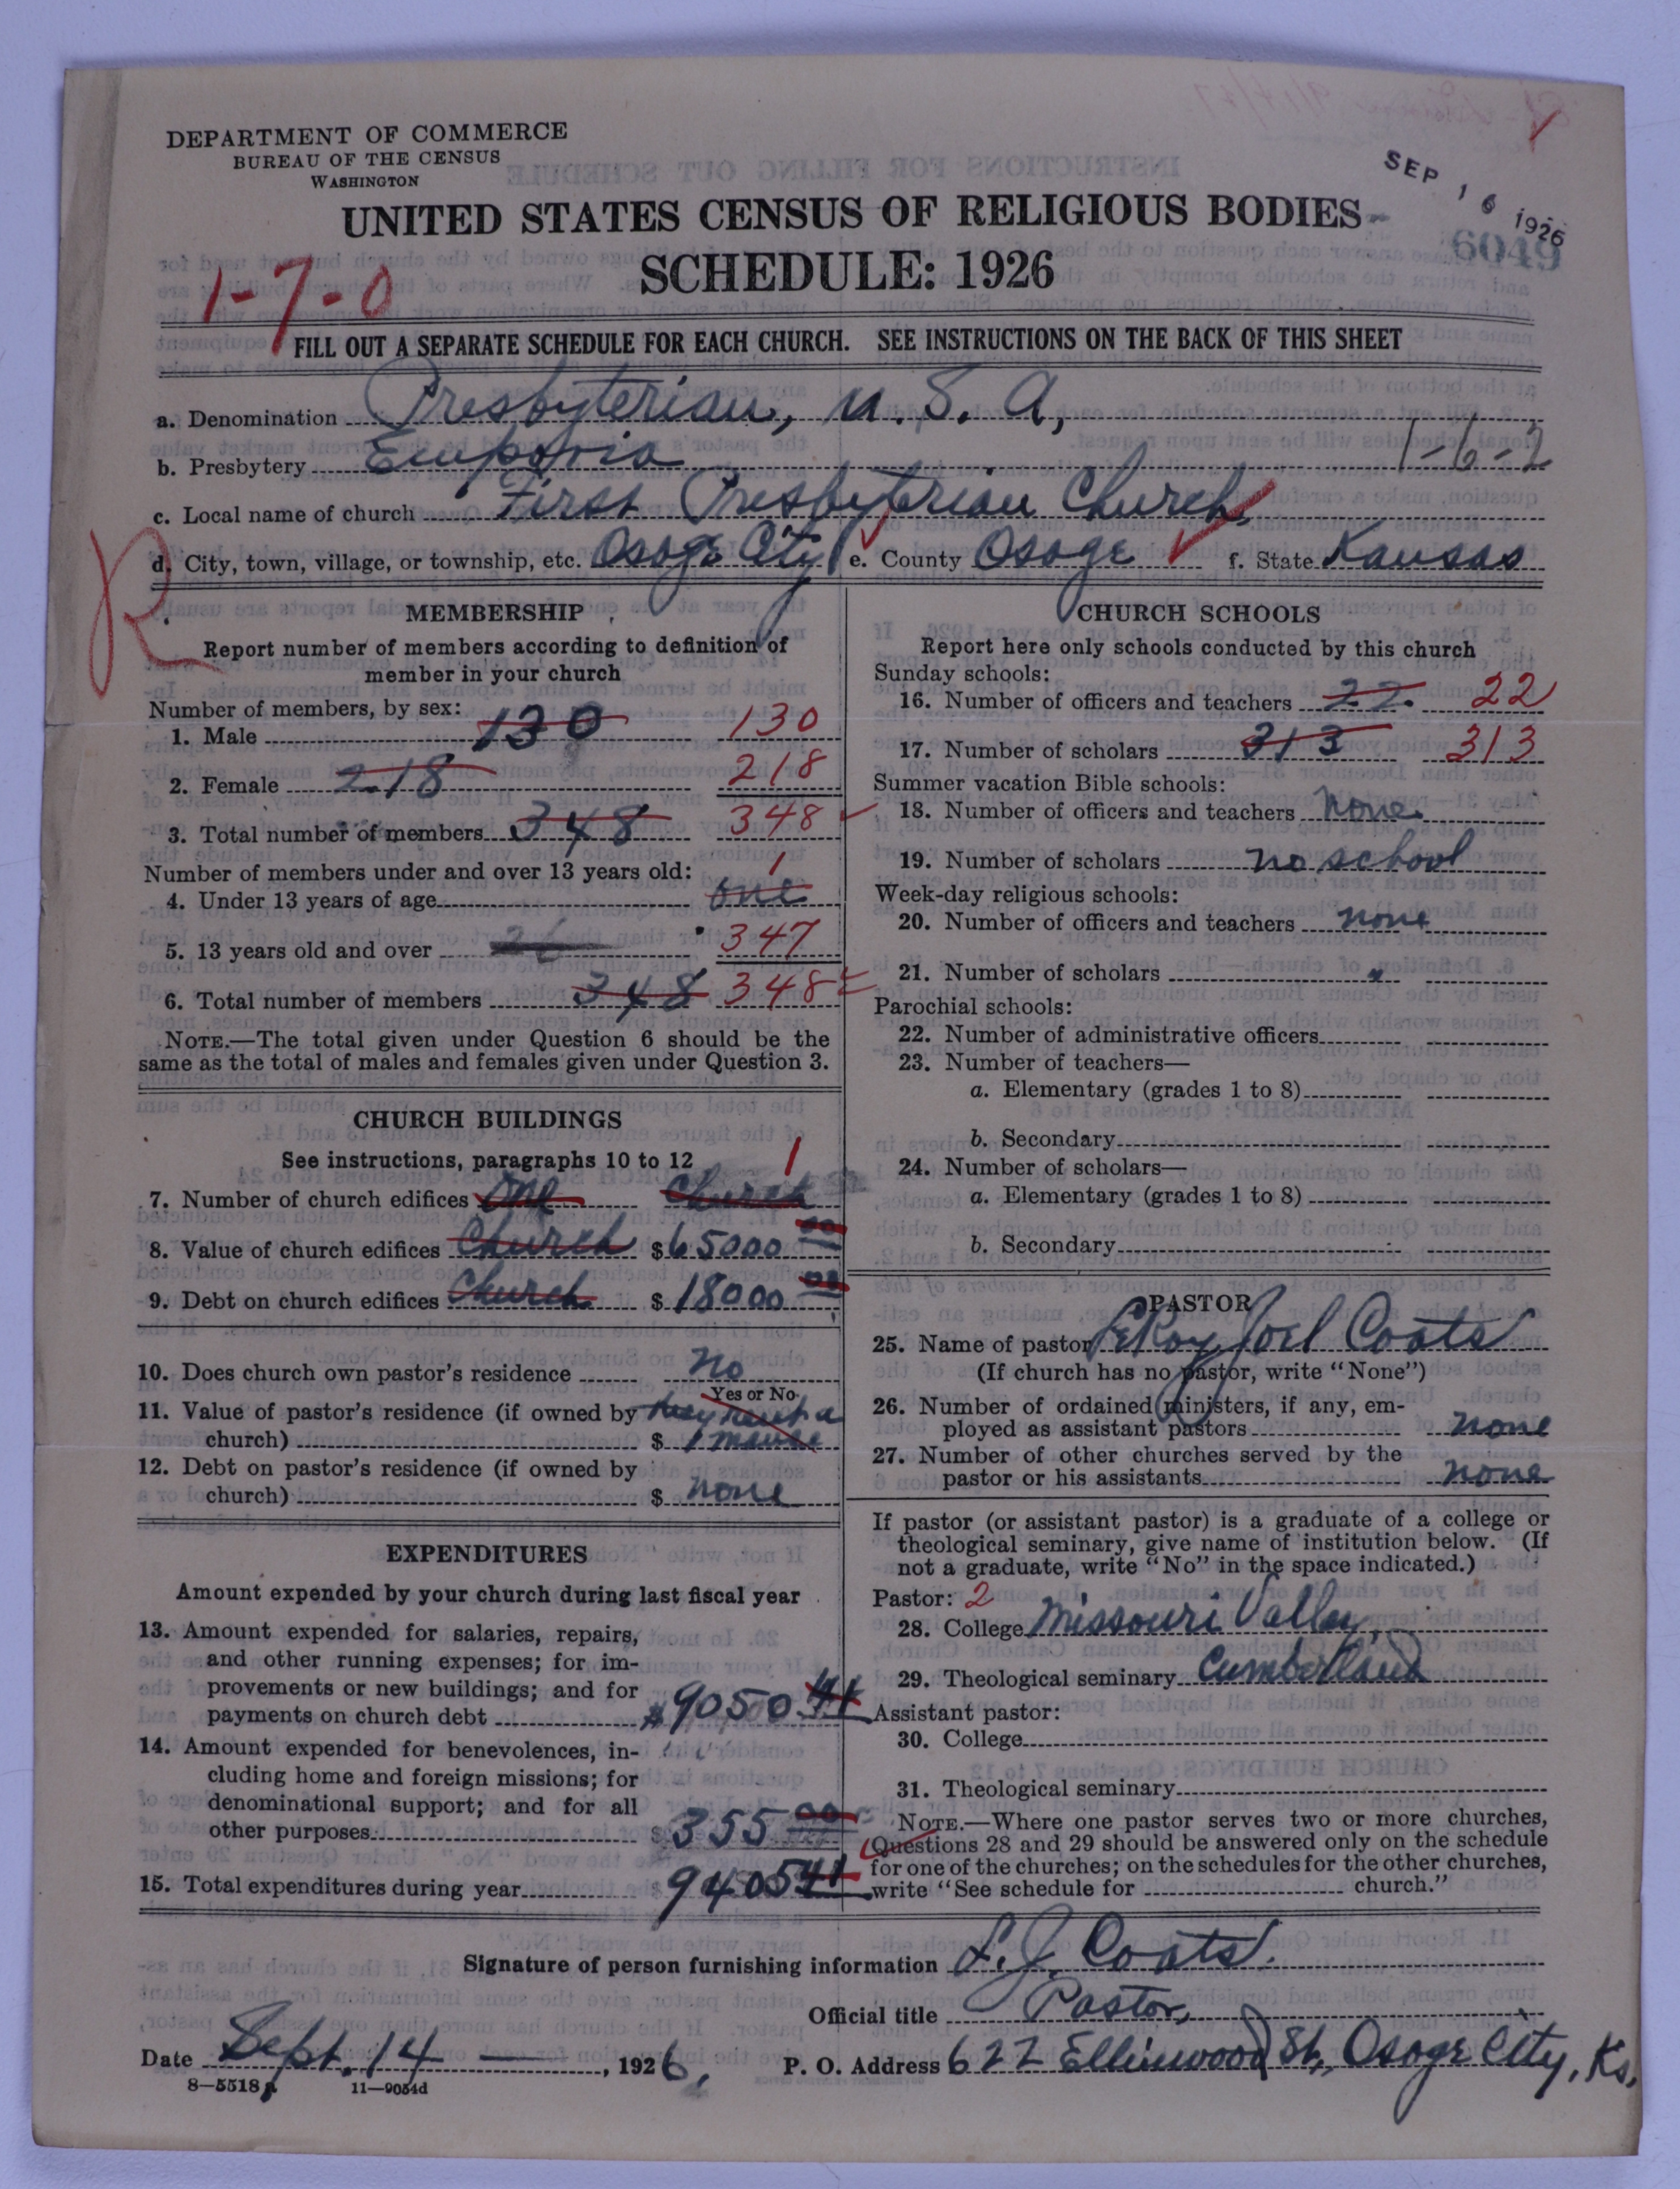 DEPARTMENT OF COMMERCE
BUREAU OF THE CENSUS
WASHINGTON
SEP 16 1926
6049
UNITED STATES CENSUS OF RELIGIOUS BODIES
SCHEDULE: 1926
1-7-0
FILL OUT A SEPARATE SCHEDULE FOR EACH CHURCH. SEE INSTRUCTIONS ON THE BACK OF THIS SHEET
a. Denomination Presbyterian, U. S. A,
b. Presbytery Emporia 1-6-2
c. Local name of church First Presbyterian Church,
d. City, town, village, or township, etc. Osage City e. County Osage f. State Kansas
R
MEMBERSHIP
Report number of members according to definition of
member in your church
Number of members, by sex:
1. Male 130 130
2. Female 218 218
3. Total number of members 348 348
Number of members under and over 13 years old: 1
4. Under 13 years of age one
5. 13 years old and over 347
6. Total number of members 348 348
NOTE.—The total given under Question 6 should be the
same as the total of males and females given under Question 3.
CHURCH BUILDINGS
See instructions, paragraphs 10 to 12 1
7. Number of church edifices one Church
8. Value of church edifices Church $65000 00
9. Debt on church edifices Church $18000 00
10. Does church own pastor's residence No
Yes or No
11. Value of pastor's residence (if owned by they rent a
church) $ manse
12. Debt on pastor's residence (if owned by
church) $ none
EXPENDITURES
Amount expended by your church during last fiscal year
13. Amount expended for salaries, repairs,
and other running expenses; for im-
provements or new buildings; and for
payments on church debt $9050 41
14. Amount expended for benevolences, in-
cluding home and foreign missions; for
denominational support; and for all
other purposes $355 00
15. Total expenditures during year $9405 41
CHURCH SCHOOLS
Report here only schools conducted by this church
Sunday schools:
16. Number of officers and teachers 22 22
17. Number of scholars 313 313
Summer vacation Bible schools:
18. Number of officers and teachers None
19. Number of scholars no school
Week-day religious schools:
20. Number of officers and teachers none
21. Number of scholars
Parochial schools:
22. Number of administrative officers
23. Number of teachers—
a. Elementary (grades 1 to 8)
b. Secondary
24. Number of scholars—
a. Elementary (grades 1 to 8)
b. Secondary
PASTOR
25. Name of pastor LeRoy Joel Coats
(If church has no pastor, write "None")
26. Number of ordained ministers, if any, em-
ployed as assistant pastors none
27. Number of other churches served by the
pastor or his assistants none
If pastor (or assistant pastor) is a graduate of a college or
theological seminary, give name of institution below. (If
not a graduate, write "No" in the space indicated.)
Pastor: 2
28. College Missouri Valley,
29. Theological seminary Cumberland
Assistant pastor:
30. College
31. Theological seminary
NOTE.—Where one pastor serves two or more churches,
Questions 28 and 29 should be answered only on the schedule
for one of the churches; on the schedules for the other churches,
write "See schedule for church."
Signature of person furnishing information L. J. Coats.
Official title Pastor,
Date Sept. 14 , 1926, P. O. Address 622 Ellinwood St, Osage City, Ks,
8—5518 11—9054d